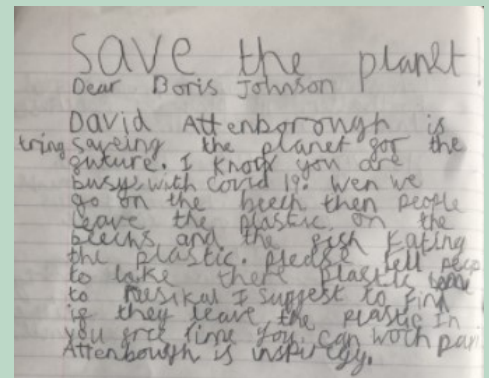 save the planet
Dear Boris Johnson
David Attenborough is
tring saveing the planet gor the
guture. I know you are
busy with covid 19. wen we
go on the beech then people
leave the plastic on the
beechs and the gish Eating
the plastic. please tell peop
to take there plastic home
to I suggest to Find
ig they leave the plastic In
you gree time you can woch
Attenbough is